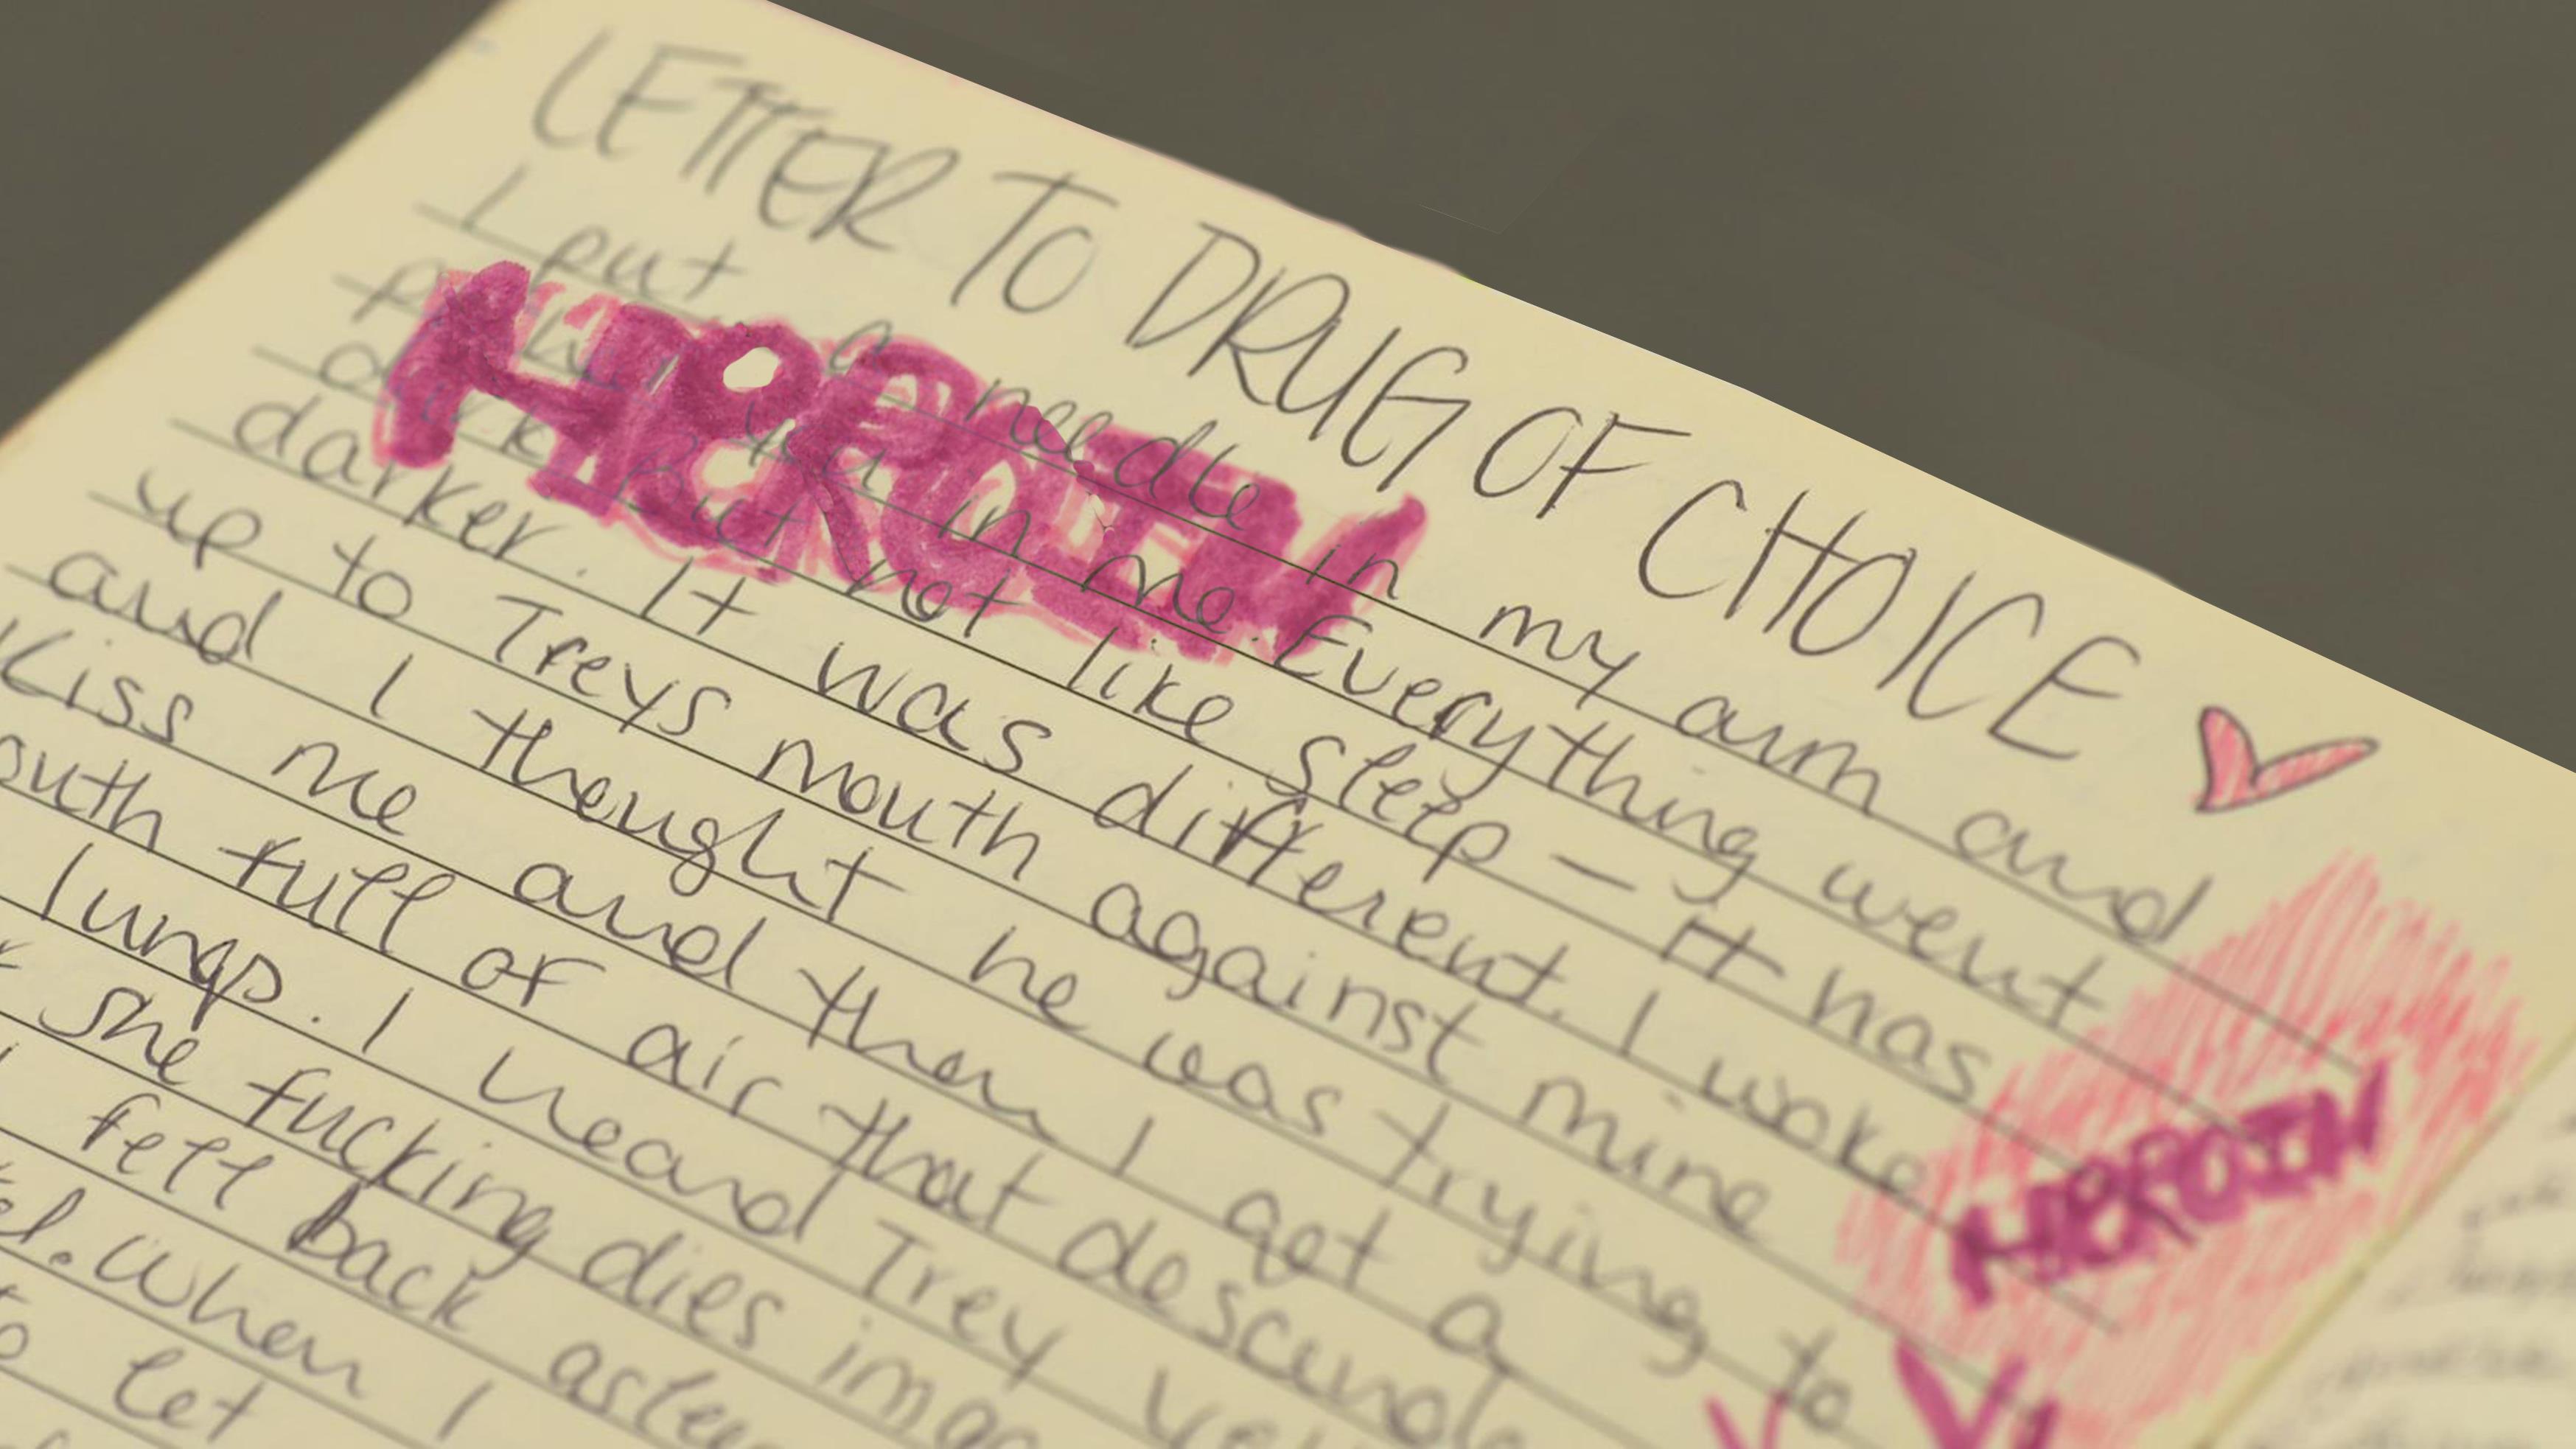 LETTER TO DRUG OF CHOICE
I put a needle in my arm and
you in me. Everything went
But not like sleep - It has
darker. It was different. I woke
up to Treys mouth against mine
and I thought he was trying to
Kiss me and then I get a
full of air that descend
lungs. I heard Trey
she fucking dies
fell back asleep
When I
let
HEROIN
HEROIN